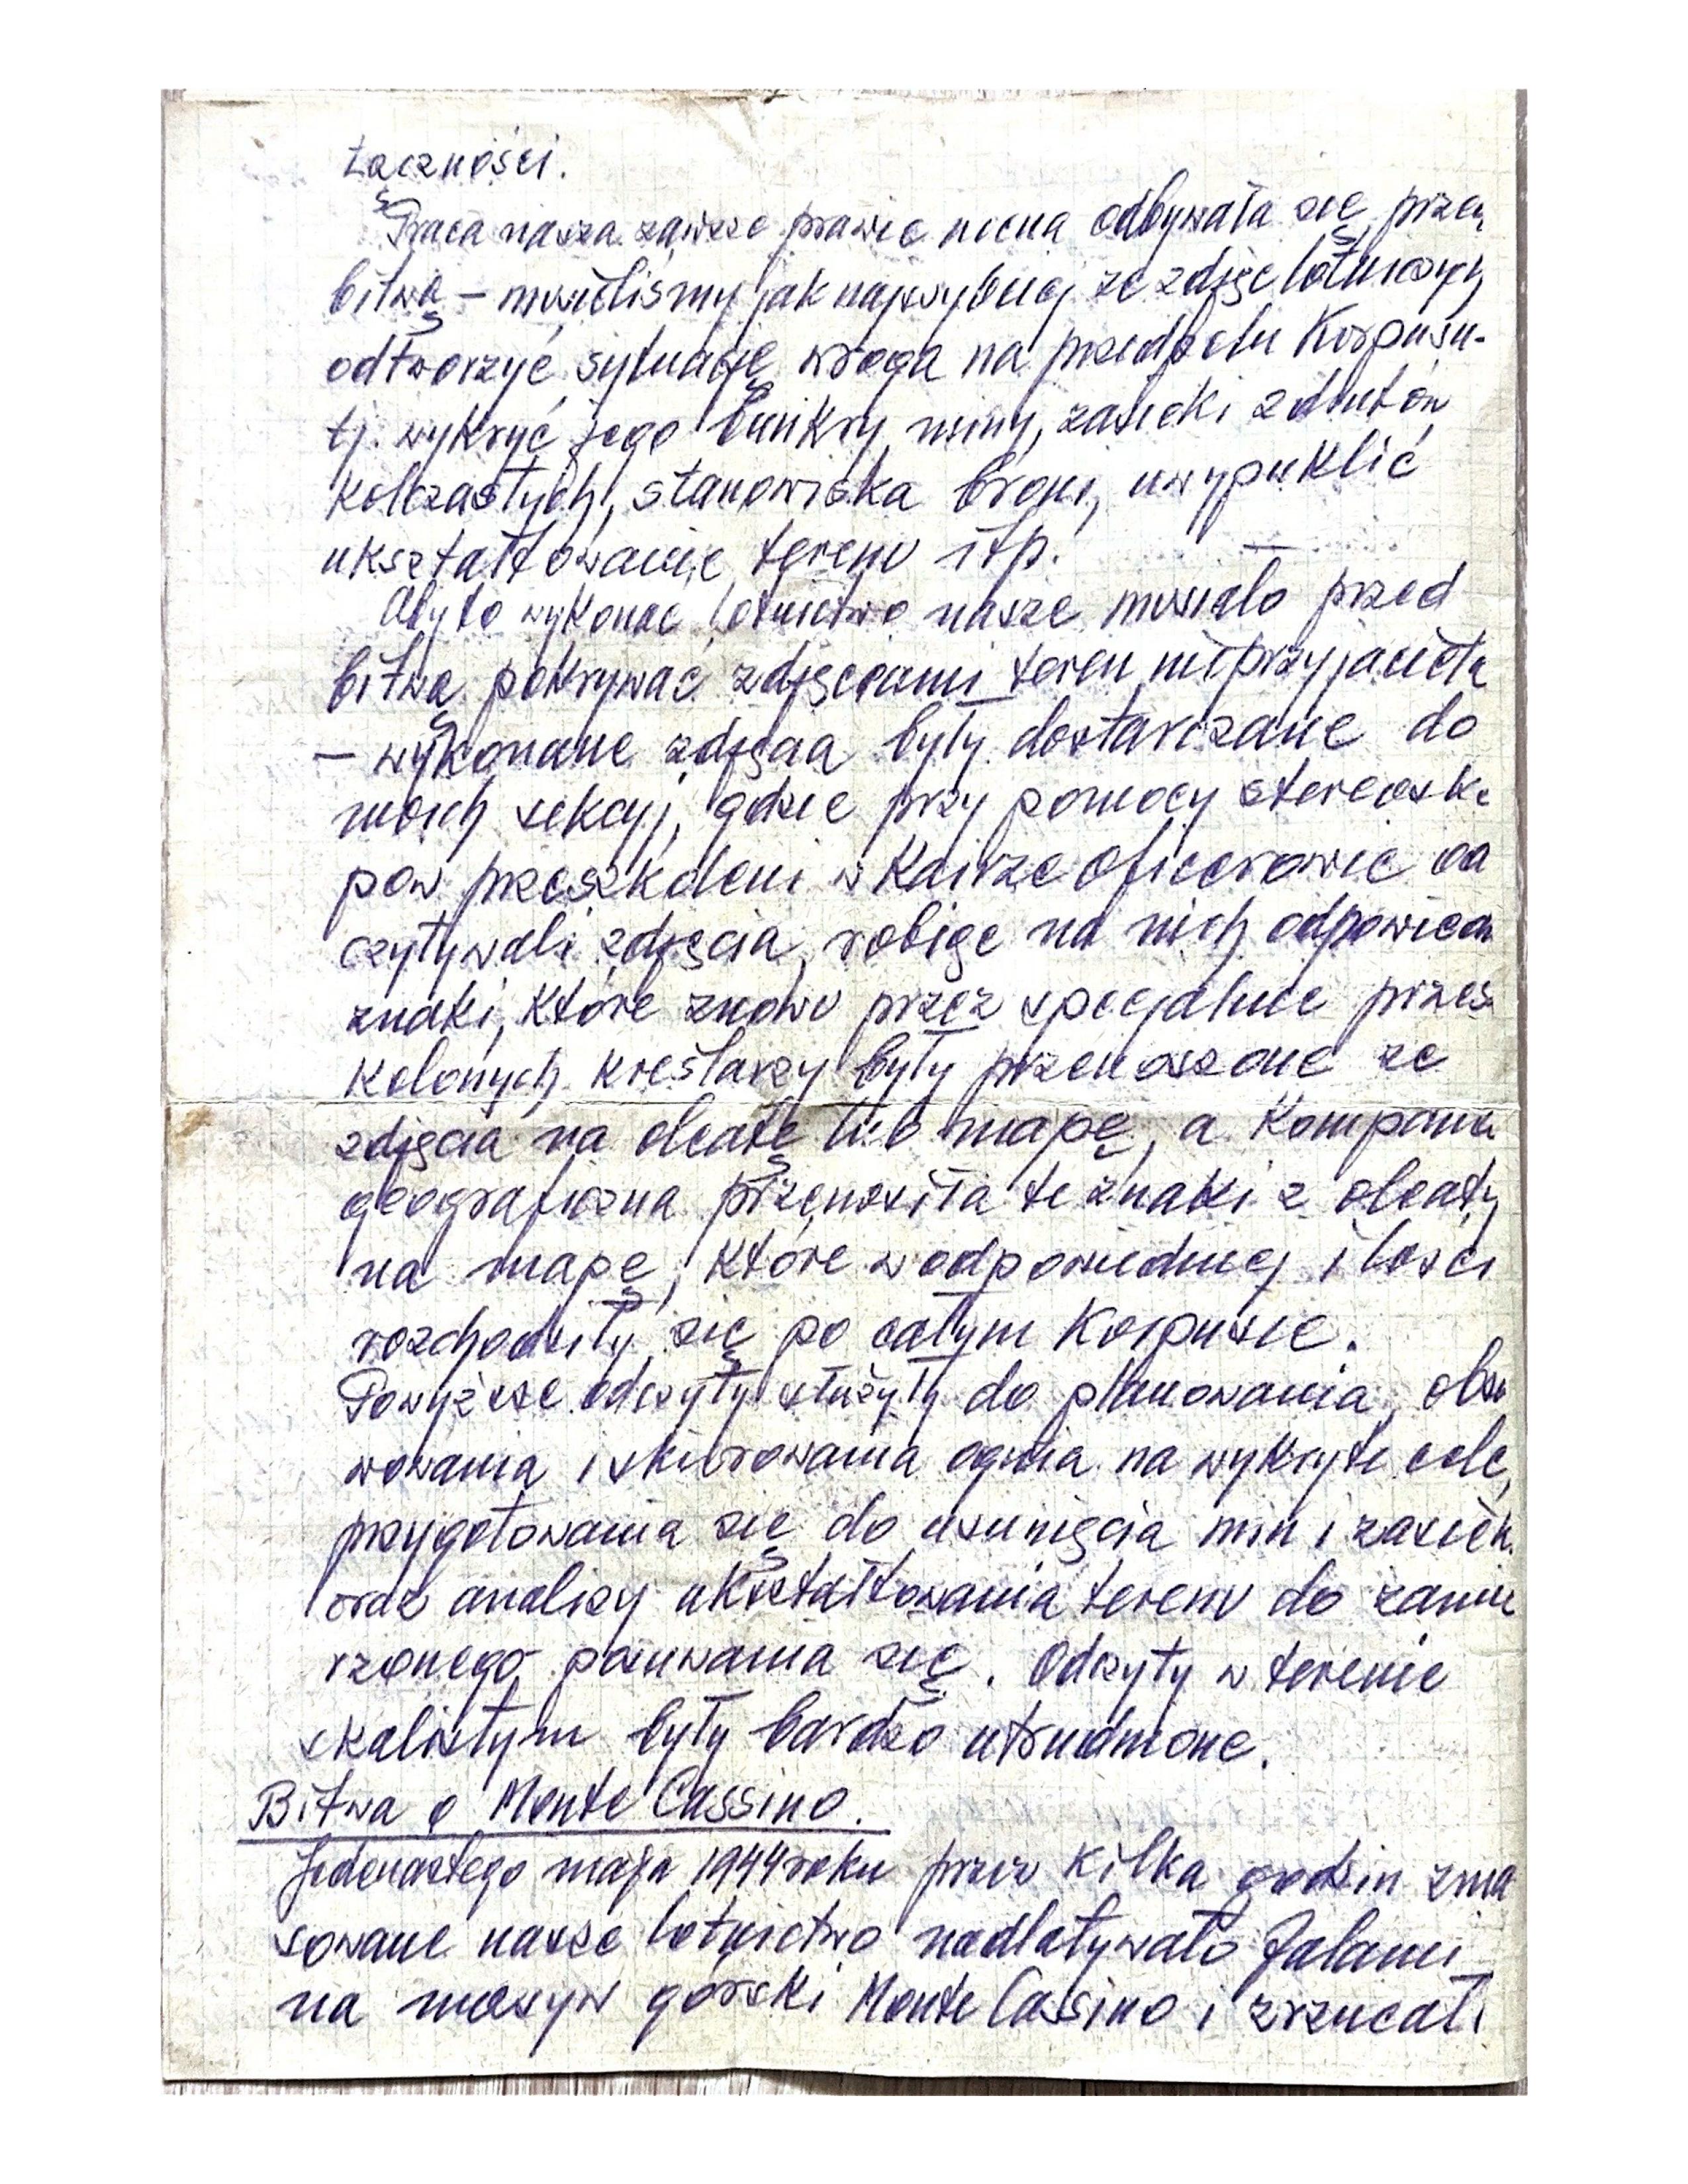 Łączności.
Praca nasza zawsze prawie nocna odbywała się przed
bitwą – musieliśmy jak najszybciej ze zdjęć lotniczych
odtworzyć sytuację wroga na przedpolu Korpusu-
tj. wykryć jego bunkry, miny, zasieki z drutów
kolczastych, stanowiska broni, uwypuklić
ukształtowanie terenu itp.
Aby to wykonać lotnictwo nasze musiało przed
bitwą pokrywać zdjęciami teren nieprzyjaciela
– wykonane zdjęcia były dostarczane do
moich sekcyj, gdzie przy pomocy stereosko
pów przeszkoleni w Kairze oficerowie od
czytywali zdjęcia, robiąc na nich odpowied.
znaki, które znowu przez specjalnie przesz
kolonych kreślarzy były przenoszone ze
zdjęcia na oleatę lub mapę, a Kompania
geograficzna przenosiła te znaki z oleaty
na mapę, które w odpowiedniej ilości
rozchodziły się po całym Korpusie.
Powyższe odczyty służyły do planowania, obser
wowania i skierowania ognia na wykryte cele,
przygotowania się do usunięcia min i zasiek.
oraz analizy ukształtowania terenu do zamie
rzonego posuwania się. Odczyty w terenie
skalistym były bardzo utrudnione.
Bitwa o Monte Cassino.
Jedenastego maja 1944 roku przez kilka godzin zma
sowane nasze lotnictwo nadlatywało falami
na masyw górski Monte Cassino i zrzucali